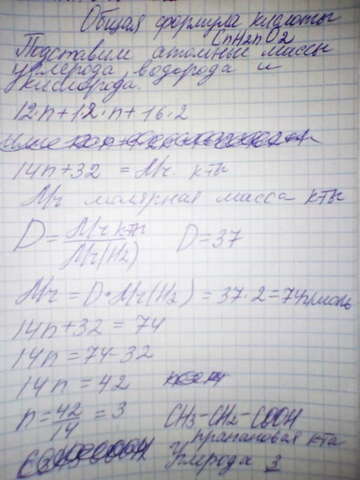 Общая формула кислоты
CnH2nO2
Подставим атомные массы
углерода, водорода и
кислорода.
12·n+12·n+16·2
14n+32 = Mr к-ты
Mr молярная масса к-ты
D = Mr к-ты / Mr(H2) D=37
Mr = D·Mr(H2) = 37·2=74г/моль
14n+32=74
14n=74-32
14n=42
n=42/14=3 CH3-CH2-COOH
пропановая к-та
Углерода 3